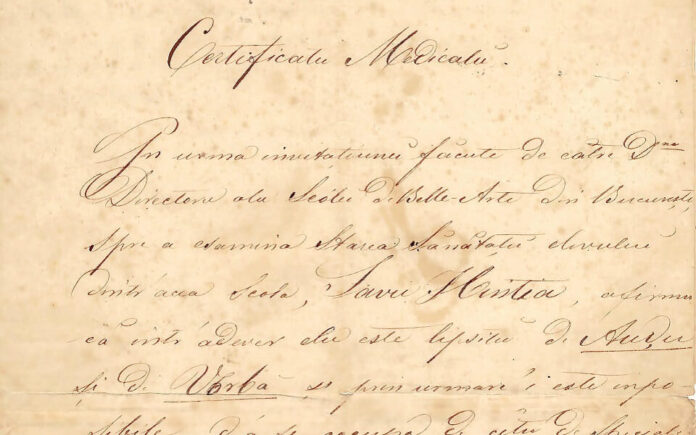 Certificatu Medicalu.
In urma invitațiunei făcute de către Dnu
Directore alu Scólei de Belle-Arte din Bucuresti,
spre a esamina starea sănătății elevului
dintr'acea Scola, Savu Hentia, afirmu
că intr'adever elu este lipsitu de Audu
și de Vorbă și prin urmare i este impo-
sibile d'a se occupa de câtu de